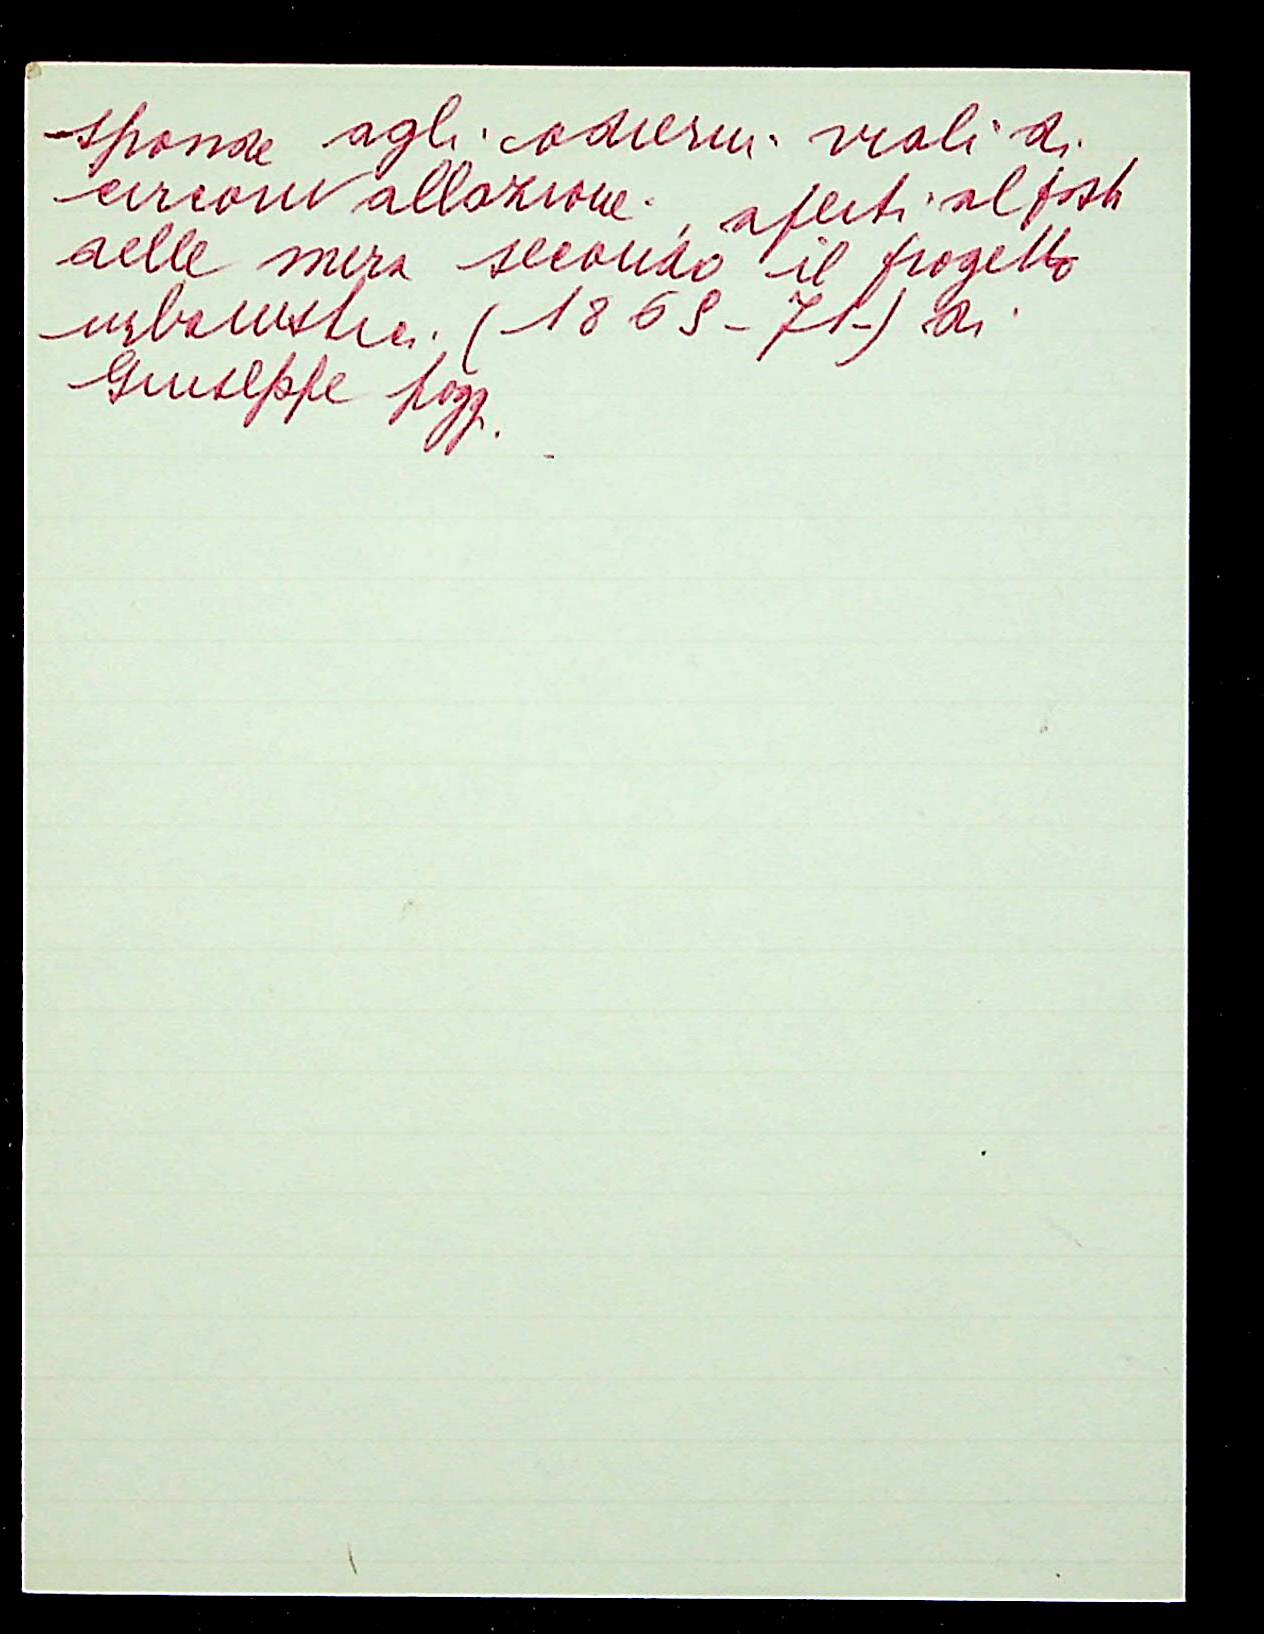 sponde agli odierni viali di
circonvallazione, aperti al posto
delle mura secondo il progetto
urbanistico (1865-71) di
Giuseppe Poggi.